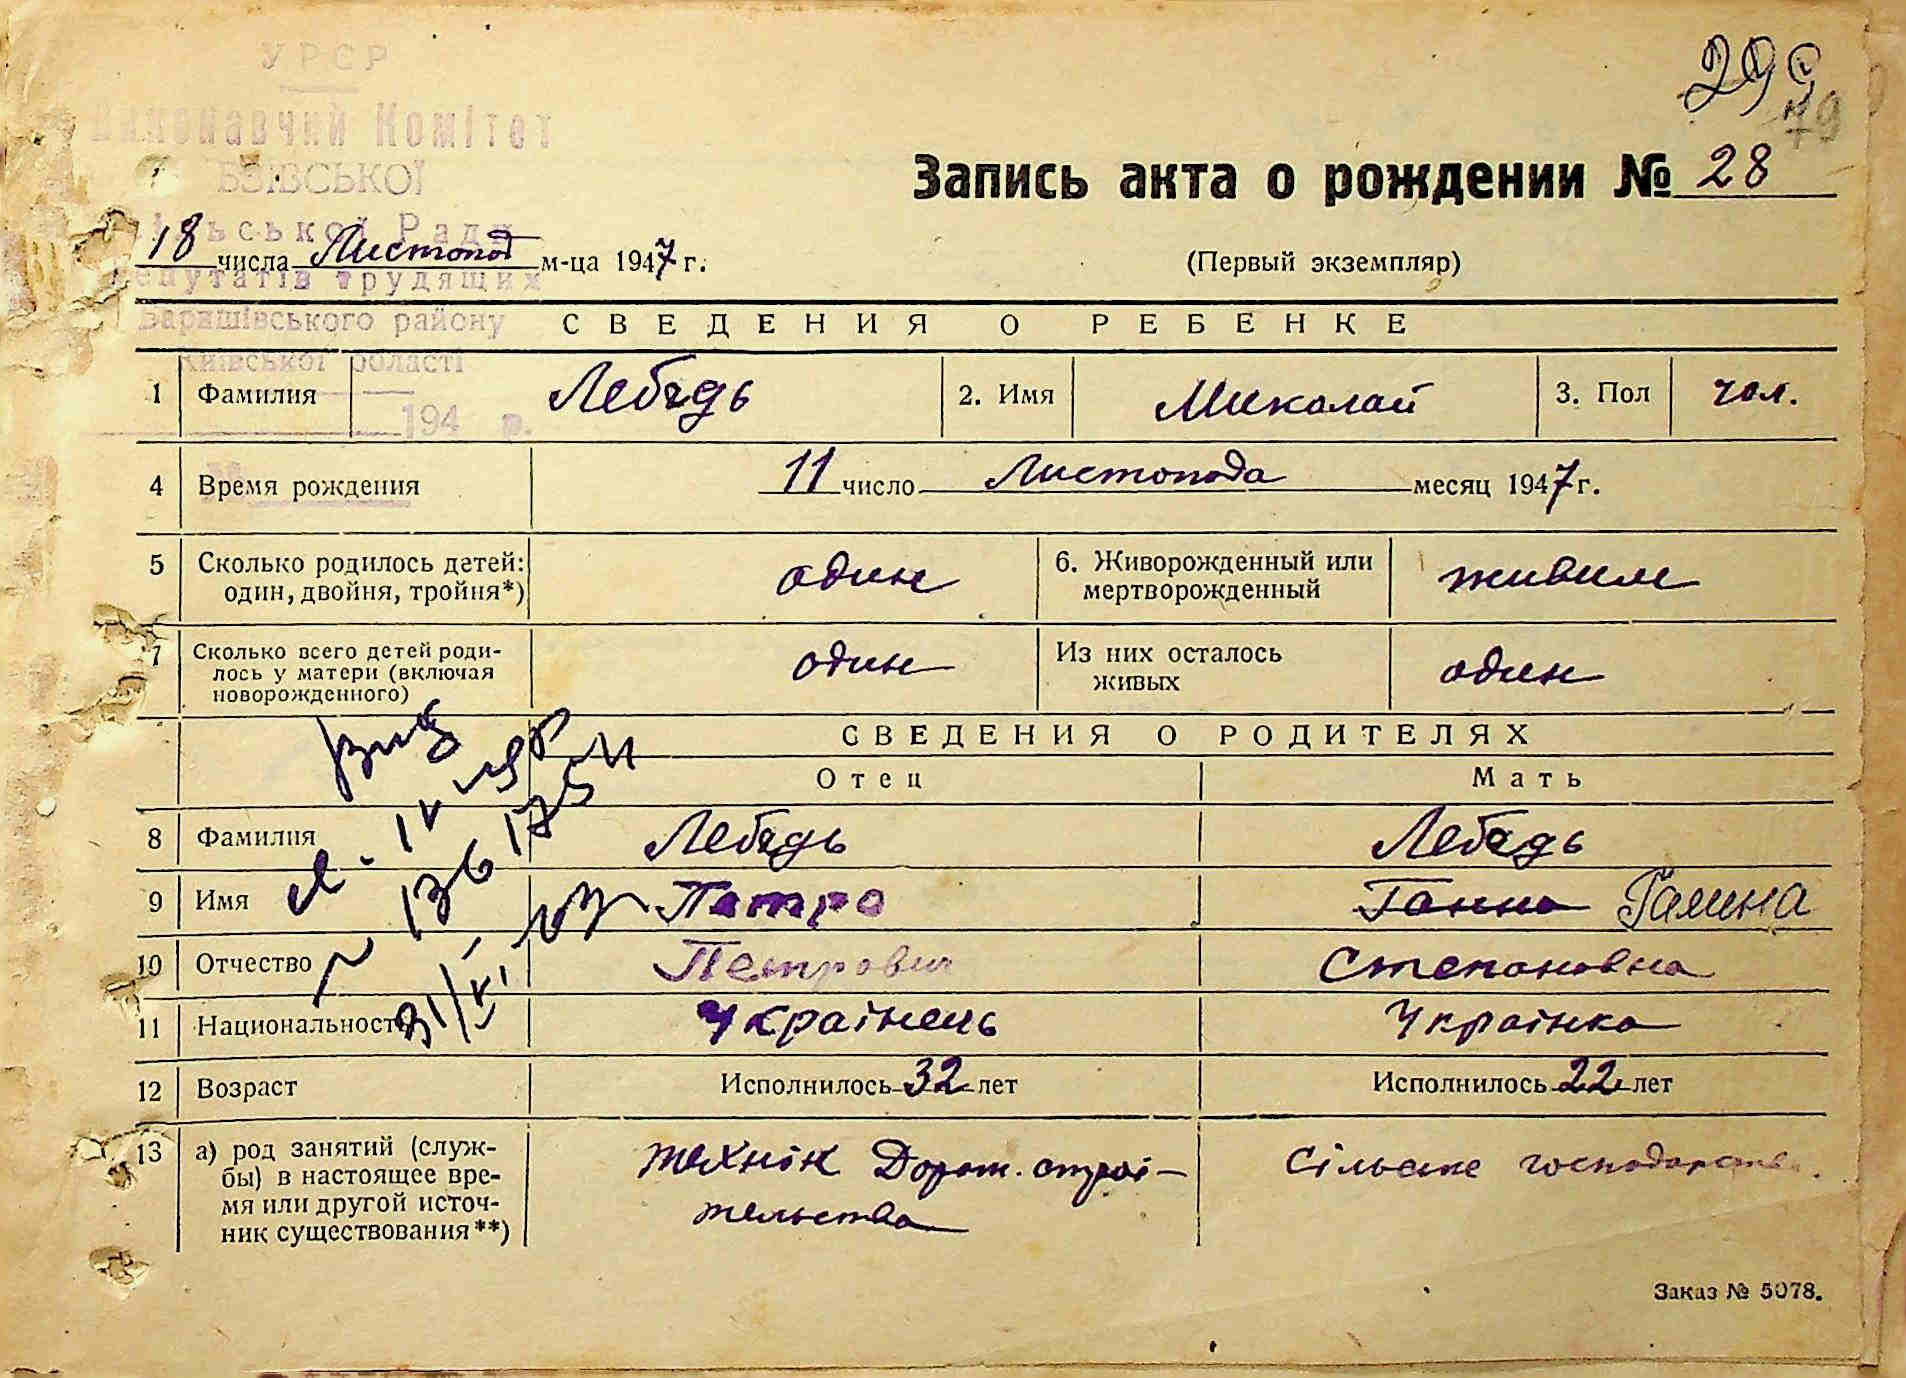 УРСР
Виконавчий Комітет
299
79
Запись акта о рождении № 28
БЗІВСЬКОЇ
сільської Ради
18 числа Листопад м-ца 1947 г.
(Первый экземпляр)
депутатів трудящих
Баришівського району
СВЕДЕНИЯ О РЕБЕНКЕ
Київської області
1 Фамилия Лебідь 2. Имя Миколай 3. Пол чол.
194 р.
4 Время рождения 11 число Листопада месяц 1947 г.
5 Сколько родилось детей: один, двойня, тройня*) один 6. Живорожденный или мертворожденный живим
7 Сколько всего детей родилось у матери (включая новорожденного) один Из них осталось живых один
СВЕДЕНИЯ О РОДИТЕЛЯХ
Отец Мать
8 Фамилия Лебідь Лебедь
9 Имя Петро Ганна Галина
10 Отчество Петрович Степановна
11 Национальность Українець Українка
12 Возраст Исполнилось 32 лет Исполнилось 22 лет
13 а) род занятий (служ-
бы) в настоящее вре-
мя или другой источ-
ник существования**)
технік Дорож. строі-
тельства
Сільське господарство.
Заказ № 5078.